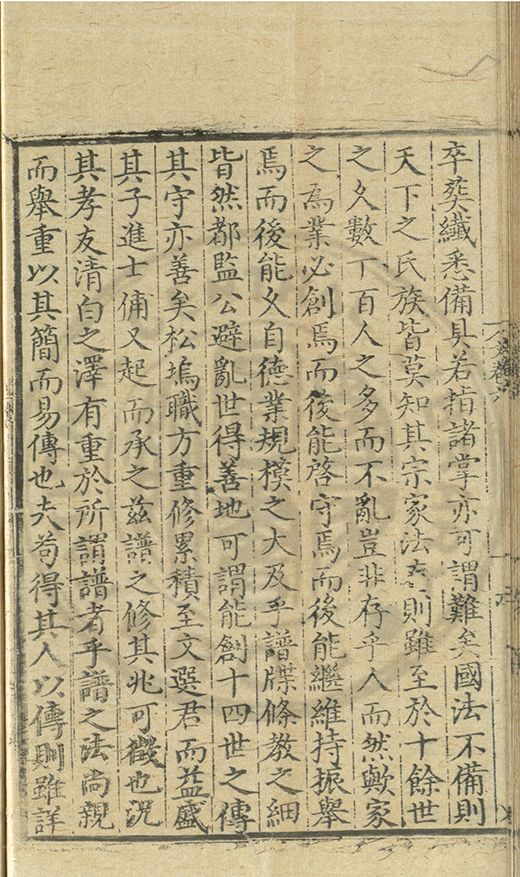 卒葬纖悉備具若指諸掌亦可謂難矣國法不備則
天下之氏族皆莫知其宗家法立則雖至於十餘世
之久數丁百人之多而不亂豈非存乎人而然歟家
之為業必創焉而後能啓守焉而後能繼維持振舉
焉而後能久自德業規模之大及乎譜牒條教之細
皆然都監公避亂世得善地可謂能創十四世之傳
其守亦善矣松塢職方重修累積至文選君而益盛
其子進士傭又起而承之茲譜之修其兆可徵也況
其孝友清白之澤有重於所謂譜者乎譜之法尚親
而舉重以其簡而易傳也夫苟得其人以傳則雖詳